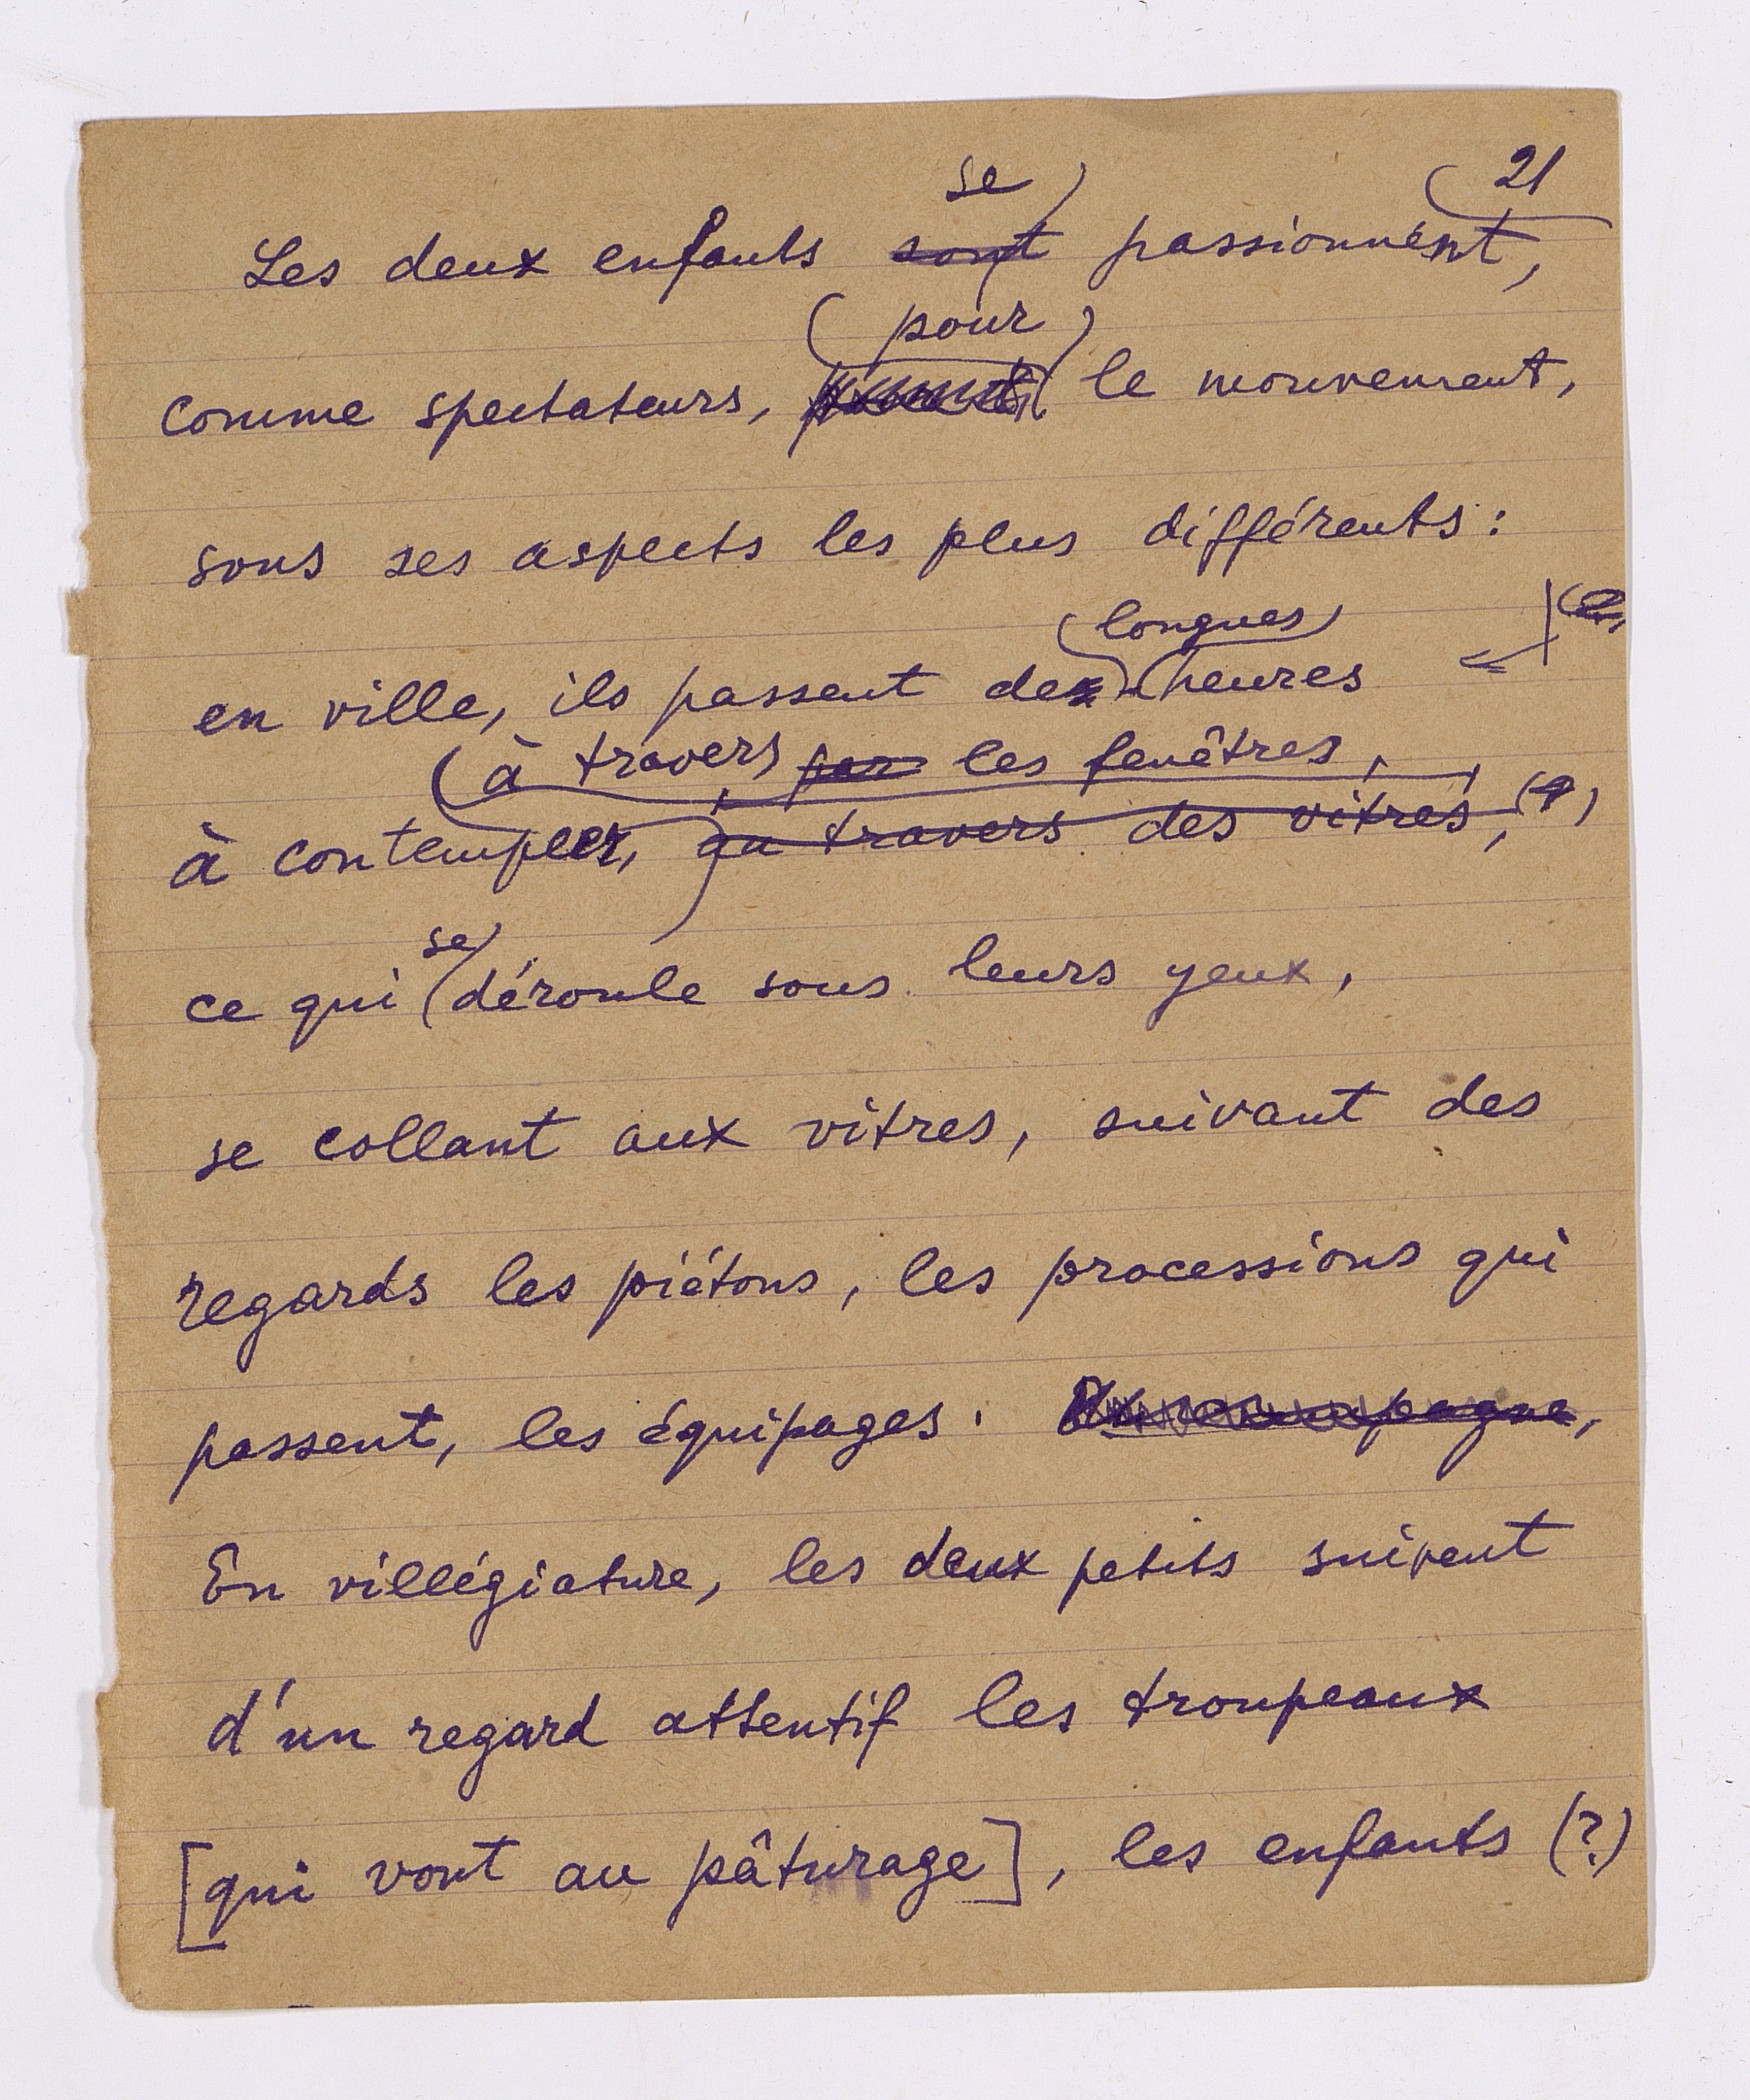 21
se
Les deux enfants sont passionnent,
pour
comme spectateurs, le mouvement,
sous ses aspects les plus différents :
longues
en ville, ils passent de heures
à travers par les fenêtres,
à contempler, au travers des vitres, (?)
se
ce qui déroule sous leurs yeux,
se collant aux vitres, suivant des
regards les piétons, les processions qui
passent, les équipages. campagne,
En villégiature, les deux petits suivent
d'un regard attentif les troupeaux
[qui vont au pâturage], les enfants (?)